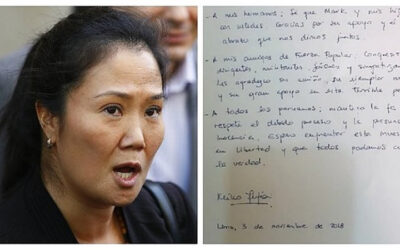 - A mis hermanos; sé que Mark, y mis hij
con ustedes. Gracias por su apoyo y el
abrazo que nos dimos juntos.
- A mis amigos de Fuerza Popular; Congresi
dirigentes, militantes, jóvenes y simpatiza
les agradezco su cariño, su ejemplar
y su gran apoyo en este terrible
- A todos los peruanos; mantengo la fe
respete el debido proceso y la presun
inocencia. Espero enfrentar esta
en libertad y que todos podamos
la verdad.
Lima, 3 de noviembre de 2018